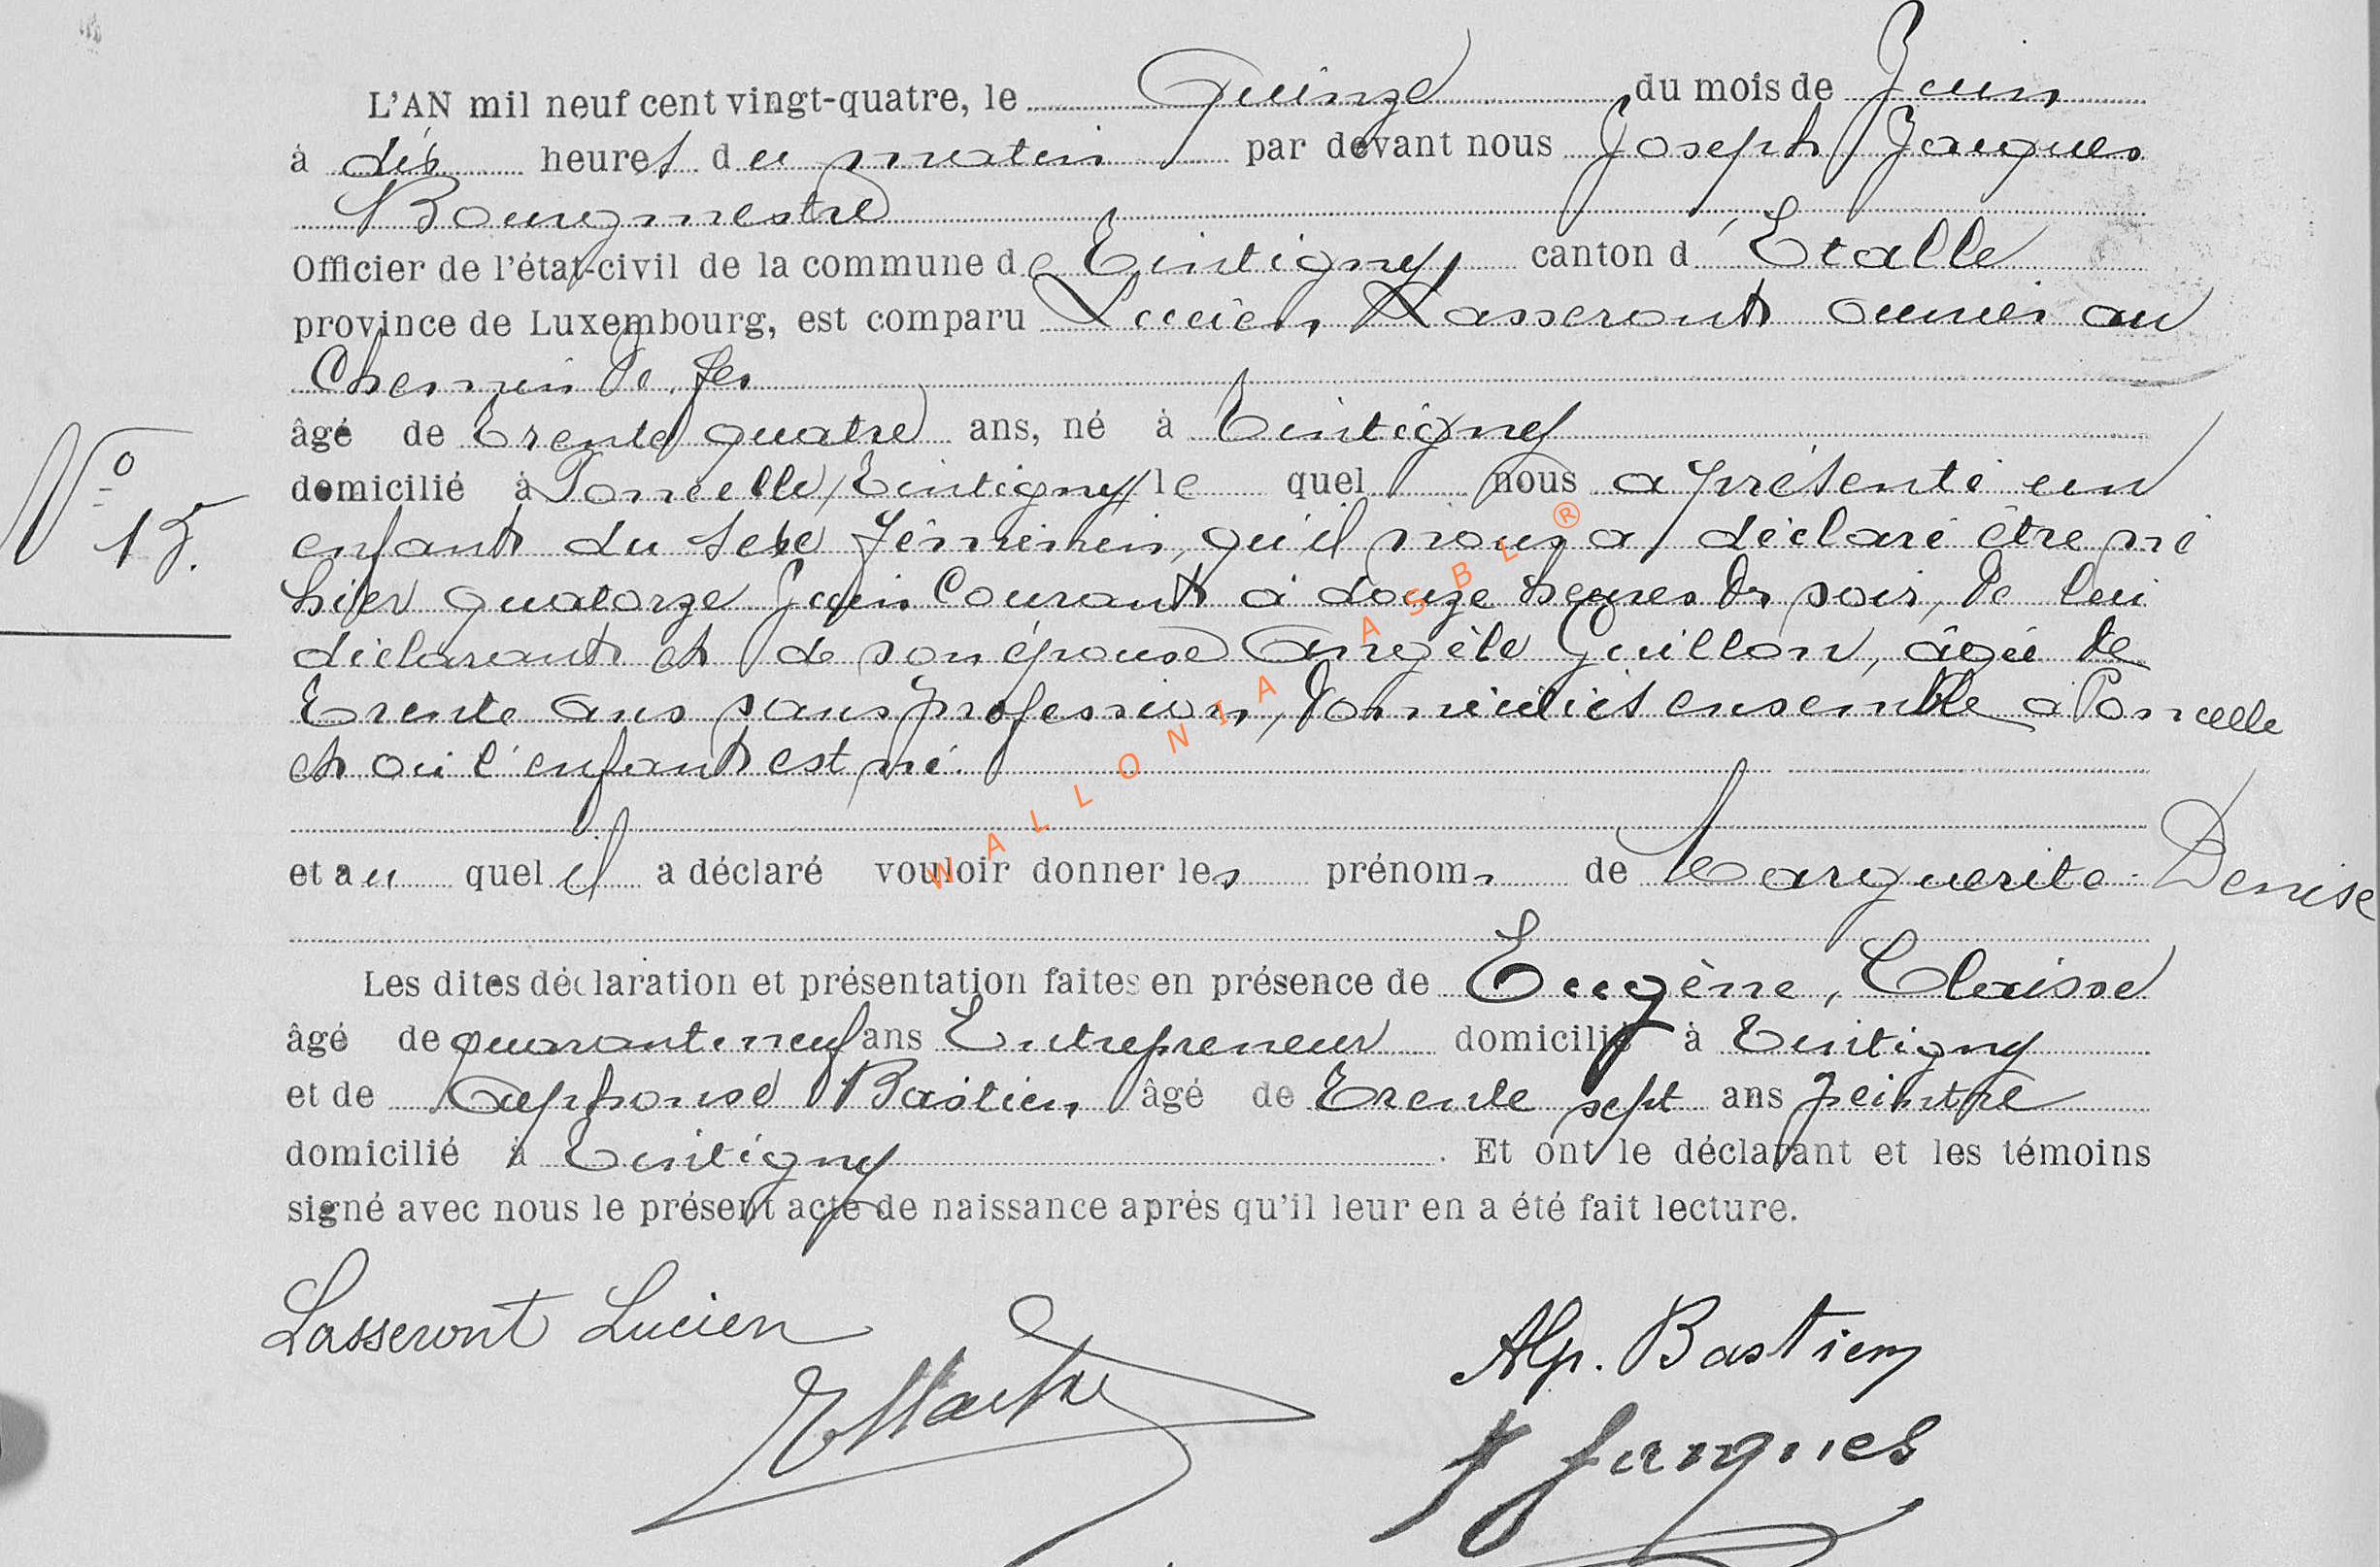 L'AN mil neuf cent vingt-quatre, le Quinze du mois de Juin
à dix heures du matin par devant nous Joseph Jacques
Bourgmestre
Officier de l'état-civil de la commune de Tintigny canton d'Etalle
province de Luxembourg, est comparu Lucien Lasseront ouvrier au
Chemin de fer
âgé de trente quatre ans, né à Tintigny
N° 15.
domicilié à Poncelle, Tintigny lequel nous a présenté un
enfant du sexe féminin, qu'il nous a déclaré être né
hier quatorze Juin Courant à douze heures du soir, de lui
déclarant et de son épouse Angèle Guillon, âgée de
trente ans sans profession, domiciliés ensemble à Poncelle
et où l'enfant est né.
et au quel il a déclaré vouloir donner les prénoms de Marguerite Denise
Les dites déclaration et présentation faites en présence de Eugène,
âgé de quarante neuf ans Entrepreneur domicilié à Tintigny
et de Alphonse Bastien âgé de trente sept ans peintre
domicilié à Tintigny. Et ont le déclarant et les témoins
signé avec nous le présent acte de naissance après qu'il leur en a été fait lecture.
Lasseront Lucien
Alp. Bastien
J Jacques
WALLONIA ASBL ®